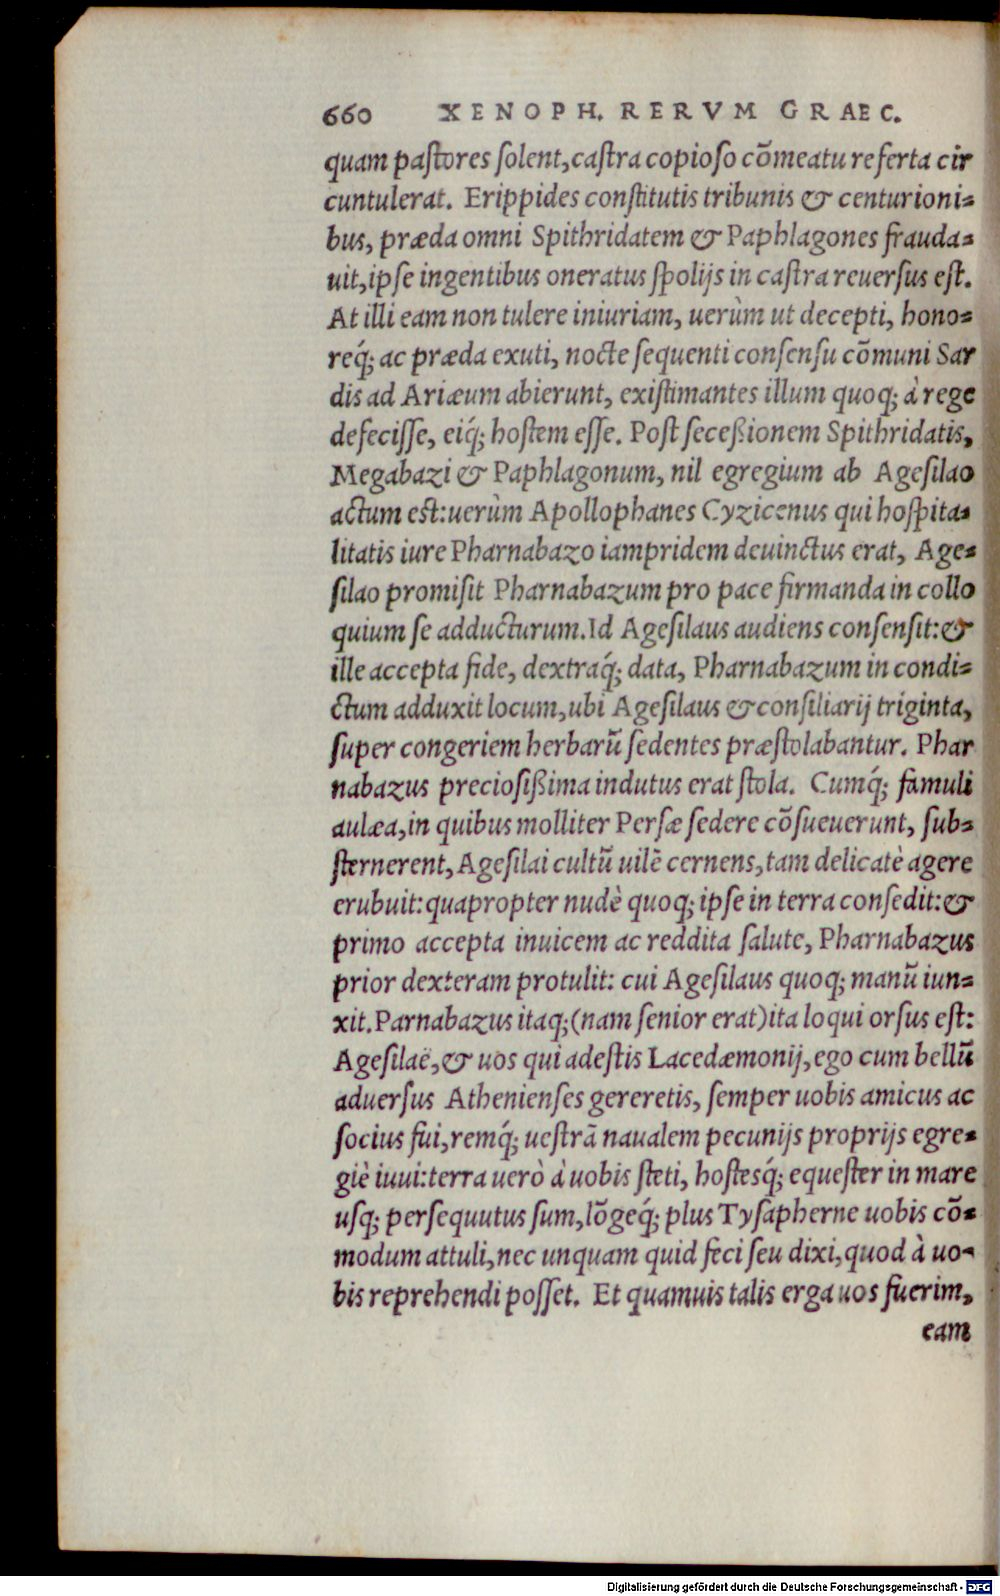 660 XENOPH. RERVM GRAEC.
quam pastores solent, castra copioso cõmeatu referta cir
cuntulerat. Erippides constitutis tribunis & centurioni-
bus, præda omni Spithridatem & Paphlagones frauda-
uit, ipse ingentibus oneratus spolijs in castra reuersus est.
At illi eam non tulere iniuriam, uerùm ut decepti, hono-
req́; ac præda exuti, nocte sequenti consensu cõmuni Sar
dis ad Ariæum abierunt, existimantes illum quoq; à rege
defecisse, eiq́; hostem esse. Post seceßionem Spithridatis,
Megabazi & Paphlagonum, nil egregium ab Agesilao
actum est: uerùm Apollophanes Cyzicenus qui hospita-
litatis iure Pharnabazo iampridem deuinctus erat, Age-
silao promisit Pharnabazum pro pace firmanda in collo
quium se adducturum. Id Agesilaus audiens consensit: &
ille accepta fide, dextraq́; data, Pharnabazum in condi-
ctum adduxit locum, ubi Agesilaus & consiliarij triginta,
super congeriem herbarũ sedentes præstolabantur. Phar
nabazus preciosißima indutus erat stola. Cumq́; famuli
aulæa, in quibus molliter Persæ sedere cõsueuerunt, sub-
sternerent, Agesilai cultũ uilẽ cernens, tam delicatè agere
erubuit: quapropter nudè quoq; ipse in terra consedit: &
primo accepta inuicem ac reddita salute, Pharnabazus
prior dexteram protulit: cui Agesilaus quoq; manũ iun-
xit. Parnabazus itaq; (nam senior erat) ita loqui orsus est:
Agesilaë, & uos qui adestis Lacedæmonij, ego cum bellũ
aduersus Athenienses gereretis, semper uobis amicus ac
socius fui, remq́; uestrã naualem pecunijs proprijs egre-
giè iuui: terra uerò à uobis steti, hostesq́; equester in mare
usq; persequutus sum, lõgeq́; plus Tysapherne uobis cõ-
modum attuli, nec unquam quid feci seu dixi, quod à uo-
bis reprehendi posset. Et quamuis talis erga uos fuerim,
eam
Digitalisierung gefördert durch die Deutsche Forschungsgemeinschaft - DFG